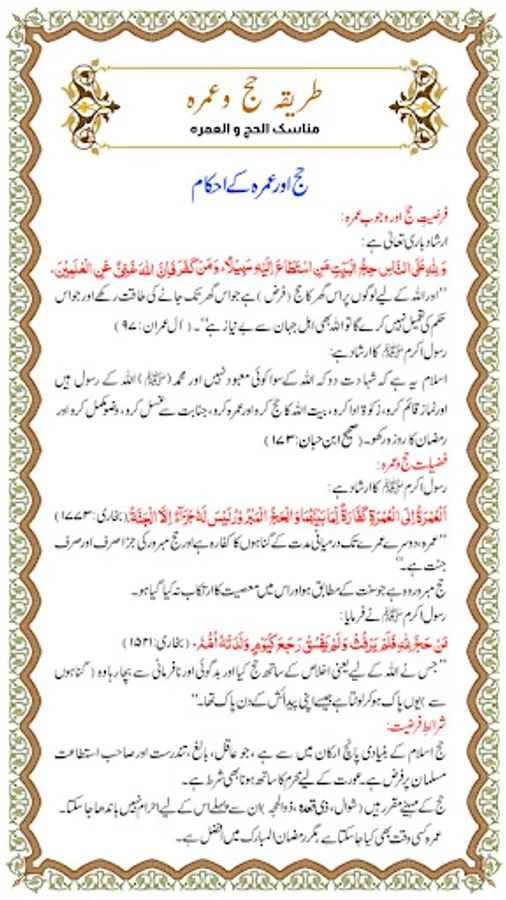 طریقہ حج وعمرہ
مناسک الحج و العمرہ
حج اور عمرہ کے احکام
فرضیتِ حج اور وجوبِ عمرہ:
ارشاد باری تعالیٰ ہے:
وَلِلّٰهِ عَلَى النَّاسِ حِجُّ الْبَيْتِ مَنِ اسْتَطَاعَ اِلَيْهِ سَبِيْلًا، وَمَنْ كَفَرَ فَاِنَّ اللهَ غَنِىٌّ عَنِ الْعٰلَمِيْنَ۔
’’اور اللہ کے لیے لوگوں پر اس گھر کا حج (فرض) ہے جو اس گھر تک جانے کی طاقت رکھے اور جو اس
حکم کی تعمیل نہیں کرے گا تو اللہ بھی اہل جہان سے بے نیاز ہے‘‘۔ (آل عمران: ۹۷)
رسول اکرم ﷺ کا ارشاد ہے:
اسلام یہ ہے کہ شہادت دو کہ اللہ کے سوا کوئی معبود نہیں اور محمد (ﷺ) اللہ کے رسول ہیں
اور نماز قائم کرو، زکوٰۃ ادا کرو، بیت اللہ کا حج کرو اور عمرہ کرو، جنابت سے غسل کرو، وضو مکمل کرو اور
رمضان کا روزہ رکھو۔ (صحیح ابن حبان: ۱۷۳)
فضیلت حج وعمرہ:
رسول اکرم ﷺ کا ارشاد ہے:
اَلْعُمْرَةُ اِلَى الْعُمْرَةِ كَفَّارَةٌ لِمَا بَيْنَهُمَا وَالْحَجُّ الْمَبْرُوْرُ لَيْسَ لَهُ جَزَآءٌ اِلَّا الْجَنَّةُ (بخاری: ۱۷۷۳)
’’عمرہ، دوسرے عمرے تک درمیانی مدت کے گناہوں کا کفارہ ہے اور حج مبرور کی جزا صرف اور صرف
جنت ہے۔‘‘
حج مبرور وہ ہے جو سنت کے مطابق ہو اور اس میں معصیت کا ارتکاب نہ کیا گیا ہو۔
رسول اکرم ﷺ نے فرمایا:
مَنْ حَجَّ لِلّٰهِ فَلَمْ يَرْفُثْ وَلَمْ يَفْسُقْ رَجَعَ كَيَوْمِ وَلَدَتْهُ اُمُّهُ۔ (بخاری: ۱۵۲۱)
’’جس نے اللہ کے لیے یعنی اخلاص کے ساتھ حج کیا اور بدگوئی اور نافرمانی سے بچا رہا وہ (گناہوں
سے) یوں پاک ہو کر لوٹتا ہے جیسے اپنی پیدائش کے دن پاک تھا۔‘‘
شرائطِ فرضیت:
حج اسلام کے بنیادی پانچ ارکان میں سے ہے، جو عاقل، بالغ، تندرست اور صاحب استطاعت
مسلمان پر فرض ہے۔ عورت کے لیے محرم کا ساتھ ہونا بھی شرط ہے۔
حج کے مہینے مقرر ہیں (شوال، ذی قعدہ، ذوالحجہ) ان سے پہلے اس کے لیے احرام نہیں باندھا جا سکتا۔
عمرہ کسی وقت بھی کیا جا سکتا ہے مگر رمضان المبارک میں افضل ہے۔